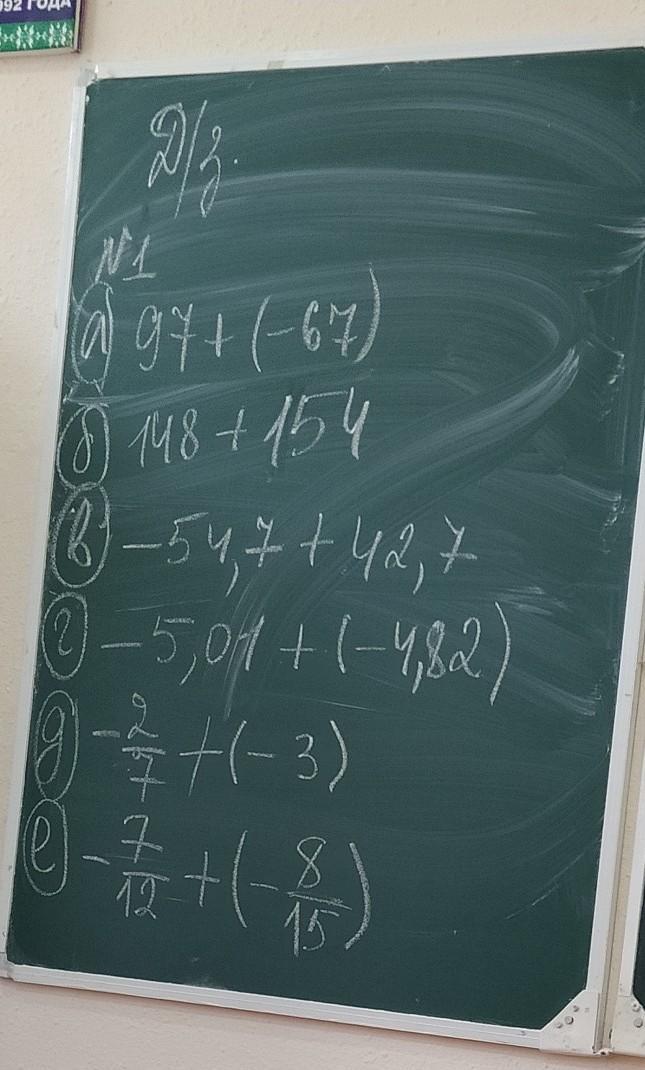 992 ГОДА
Д/з.
№1
а) 97 + (-67)
б) 148 + 154
в) -54,7 + 42,7
г) -5,01 + (-4,82)
д) -2/7 + (-3)
е) -7/12 + (-8/15)